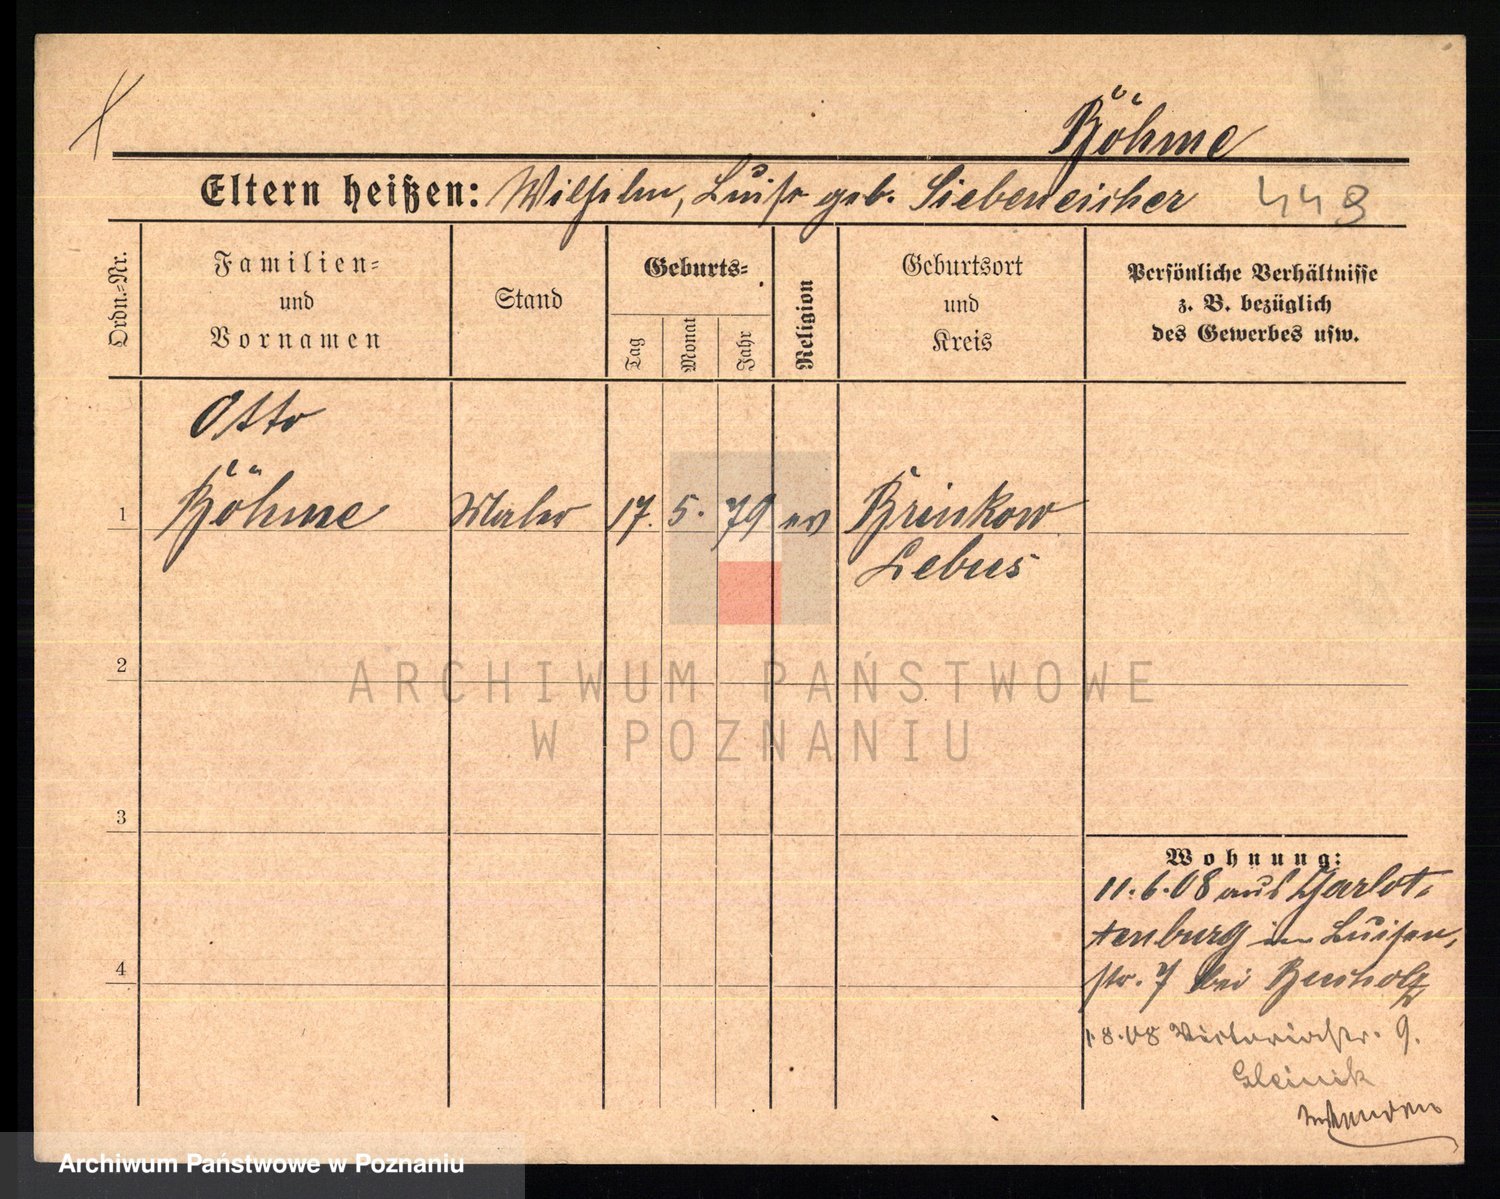 Böhme
Eltern heißen: Wilhelm, Luise geb. Siebeneicher 449
Ordn.=Nr.
Familien=
und
Vornamen
Stand
Geburts=
Tag
Monat
Jahr
Religion
Geburtsort
und
Kreis
Persönliche Verhältnisse
z. B. bezüglich
des Gewerbes usw.
Otto
1 Böhme Maler 17. 5. 79 ev Brinkow
Lebus
2
ARCHIWUM PAŃSTWOWE
W POZNANIU
3
Wohnung:
11.6.08 aus Charlot-
tenburg in Luisen,
4
str. 7 bei Buchholz
1.8.08 Victoriastr. 9.
Gleinik
Archiwum Państwowe w Poznaniu